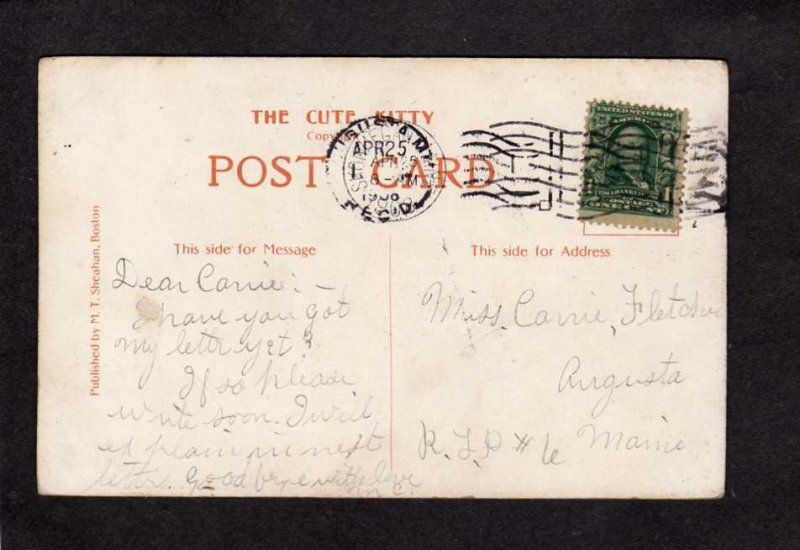 THE CUTE KITTY
POST CARD
APR 25
1908
REC'D.
UNITED STATES OF
AMERICA
Published by M. T. Sheahan, Boston
This side for Message
This side for Address
Dear Carrie: -
have you got
my letter yet?
If so please
write soon. I will
explain in next
letter. Good bye with love
Miss. Carrie, Fletcher
Augusta
R. F. D # 6 Maine